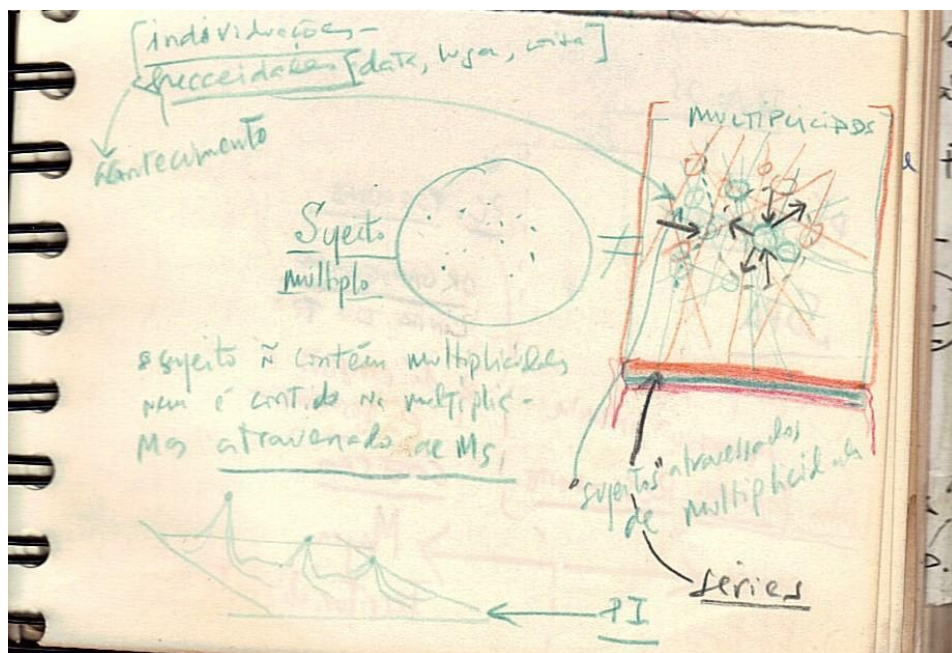 [individuações-
hecceidades [data, lugar, coisa]
Acontecimento
MULTIPLICIDADS
Sujeito
multiplo
≠
o sujeito ñ contém multiplicidades
nem é contido na multiplic-
Mas atravessado de Ms,
"sujeitos" atravessados
de multiplicidades
séries
PI